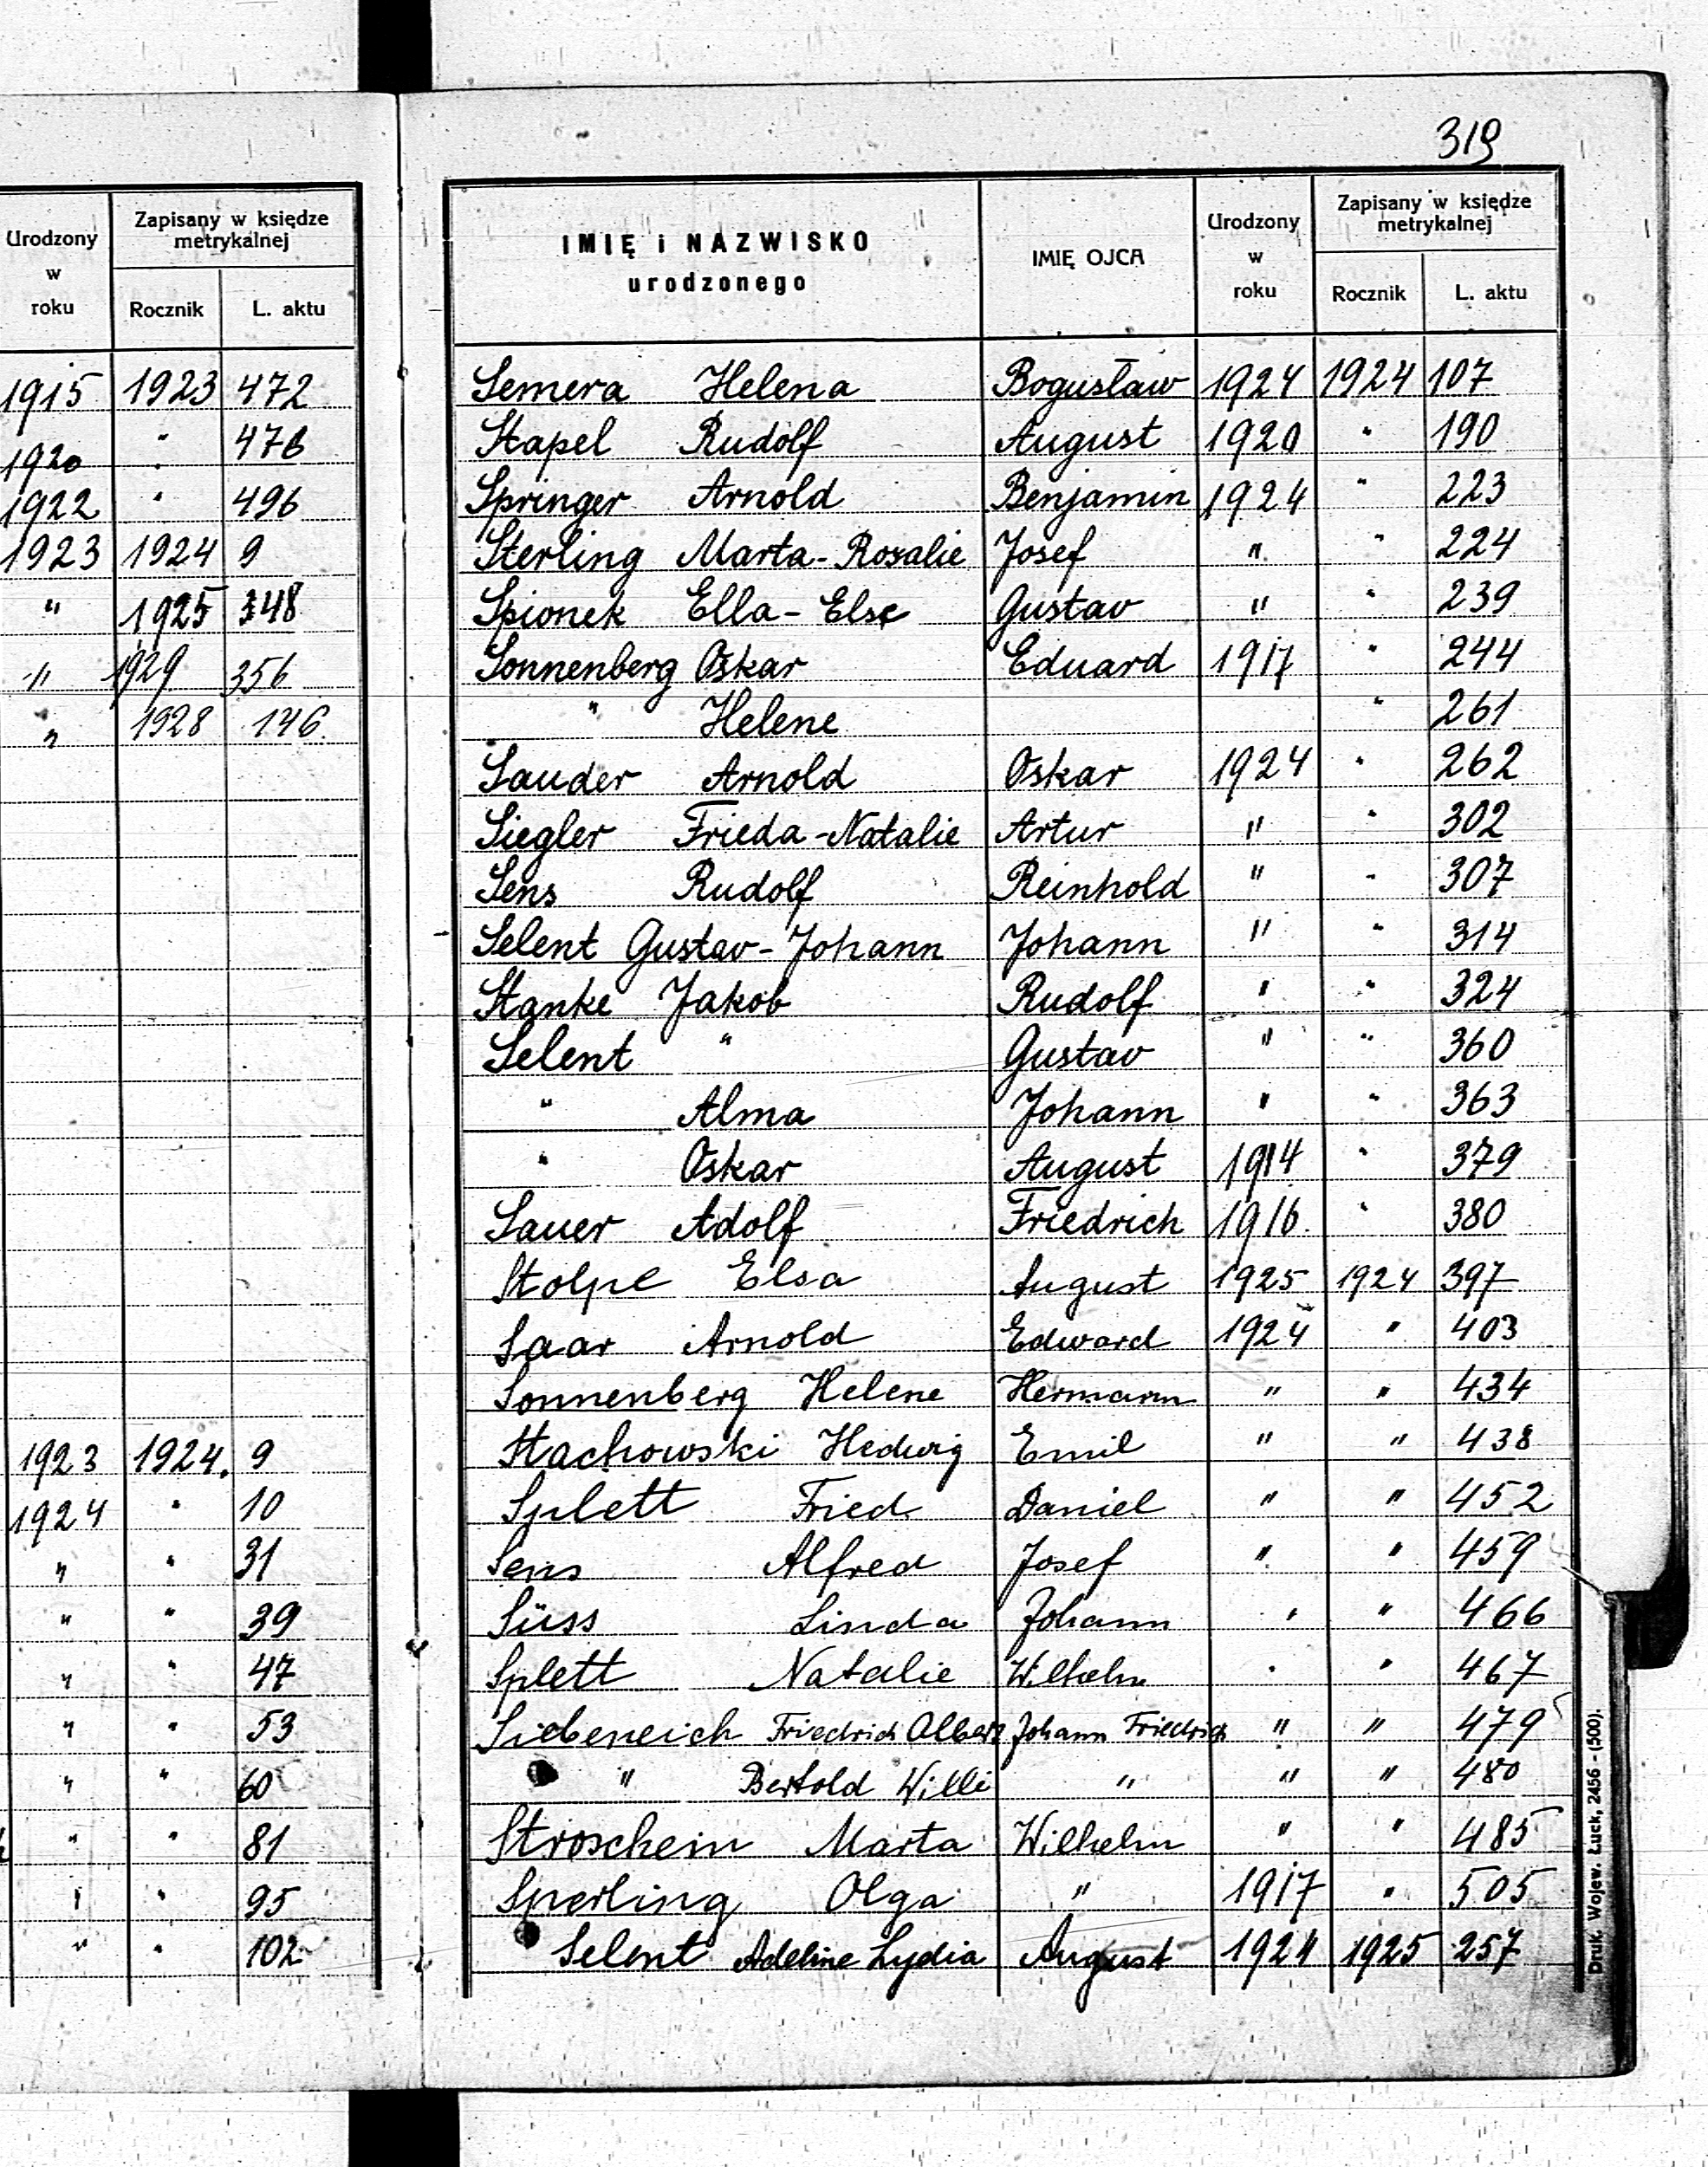 319
Urodzony w roku
Zapisany w księdze metrykalnej
Rocznik L. aktu
1915 1923 472
1920 " 476
1922 " 496
1923 1924 9
" 1925 348
" 1929 356
" 1928 146
1923 1924. 9
1924 " 10
" " 31
" " 39
" " 47
" " 53
" " 60
" " 81
" " 95
" " 102
IMIĘ i NAZWISKO urodzonego
IMIĘ OJCA
Urodzony w roku
Zapisany w księdze metrykalnej
Rocznik L. aktu
Semera Helena Bogusław 1924 1924 107
Stapel Rudolf August 1920 " 190
Springer Arnold Benjamin 1924 " 223
Sterling Marta-Rosalie Josef " " 224
Spionek Ella-Else Gustav " " 239
Sonnenberg Oskar Eduard 1917 " 244
" Helene " 261
Sauder Arnold Oskar 1924 " 262
Siegler Frieda-Natalie Artur " " 302
Sens Rudolf Reinhold " " 307
Selent Gustav-Johann Johann " " 314
Stanke Jakob Rudolf " " 324
Selent " Gustav " " 360
" Alma Johann " " 363
" Oskar August 1914 " 379
Sauer Adolf Friedrich 1916 " 380
Stolpe Elsa August 1925 1924 397
Saar Arnold Edward 1924 " 403
Sonnenberg Helene Hermann " " 434
Stachowski Hedwig Emil " " 438
Splett Fried Daniel " " 452
Sens Alfred Josef " " 459
Süss Linda Johann " " 466
Splett Natalie Wilhelm " " 467
Siebeneich Friedrich Albert Johann Friedrich " " 479
" Bertold Willi " " " 480
Stroschein Marta Wilhelm " " 485
Sperling Olga " 1917 " 505
Selent Adeline Lydia August 1924 1925 257
Druk. Wojew. Łuck, 2456 - (500).